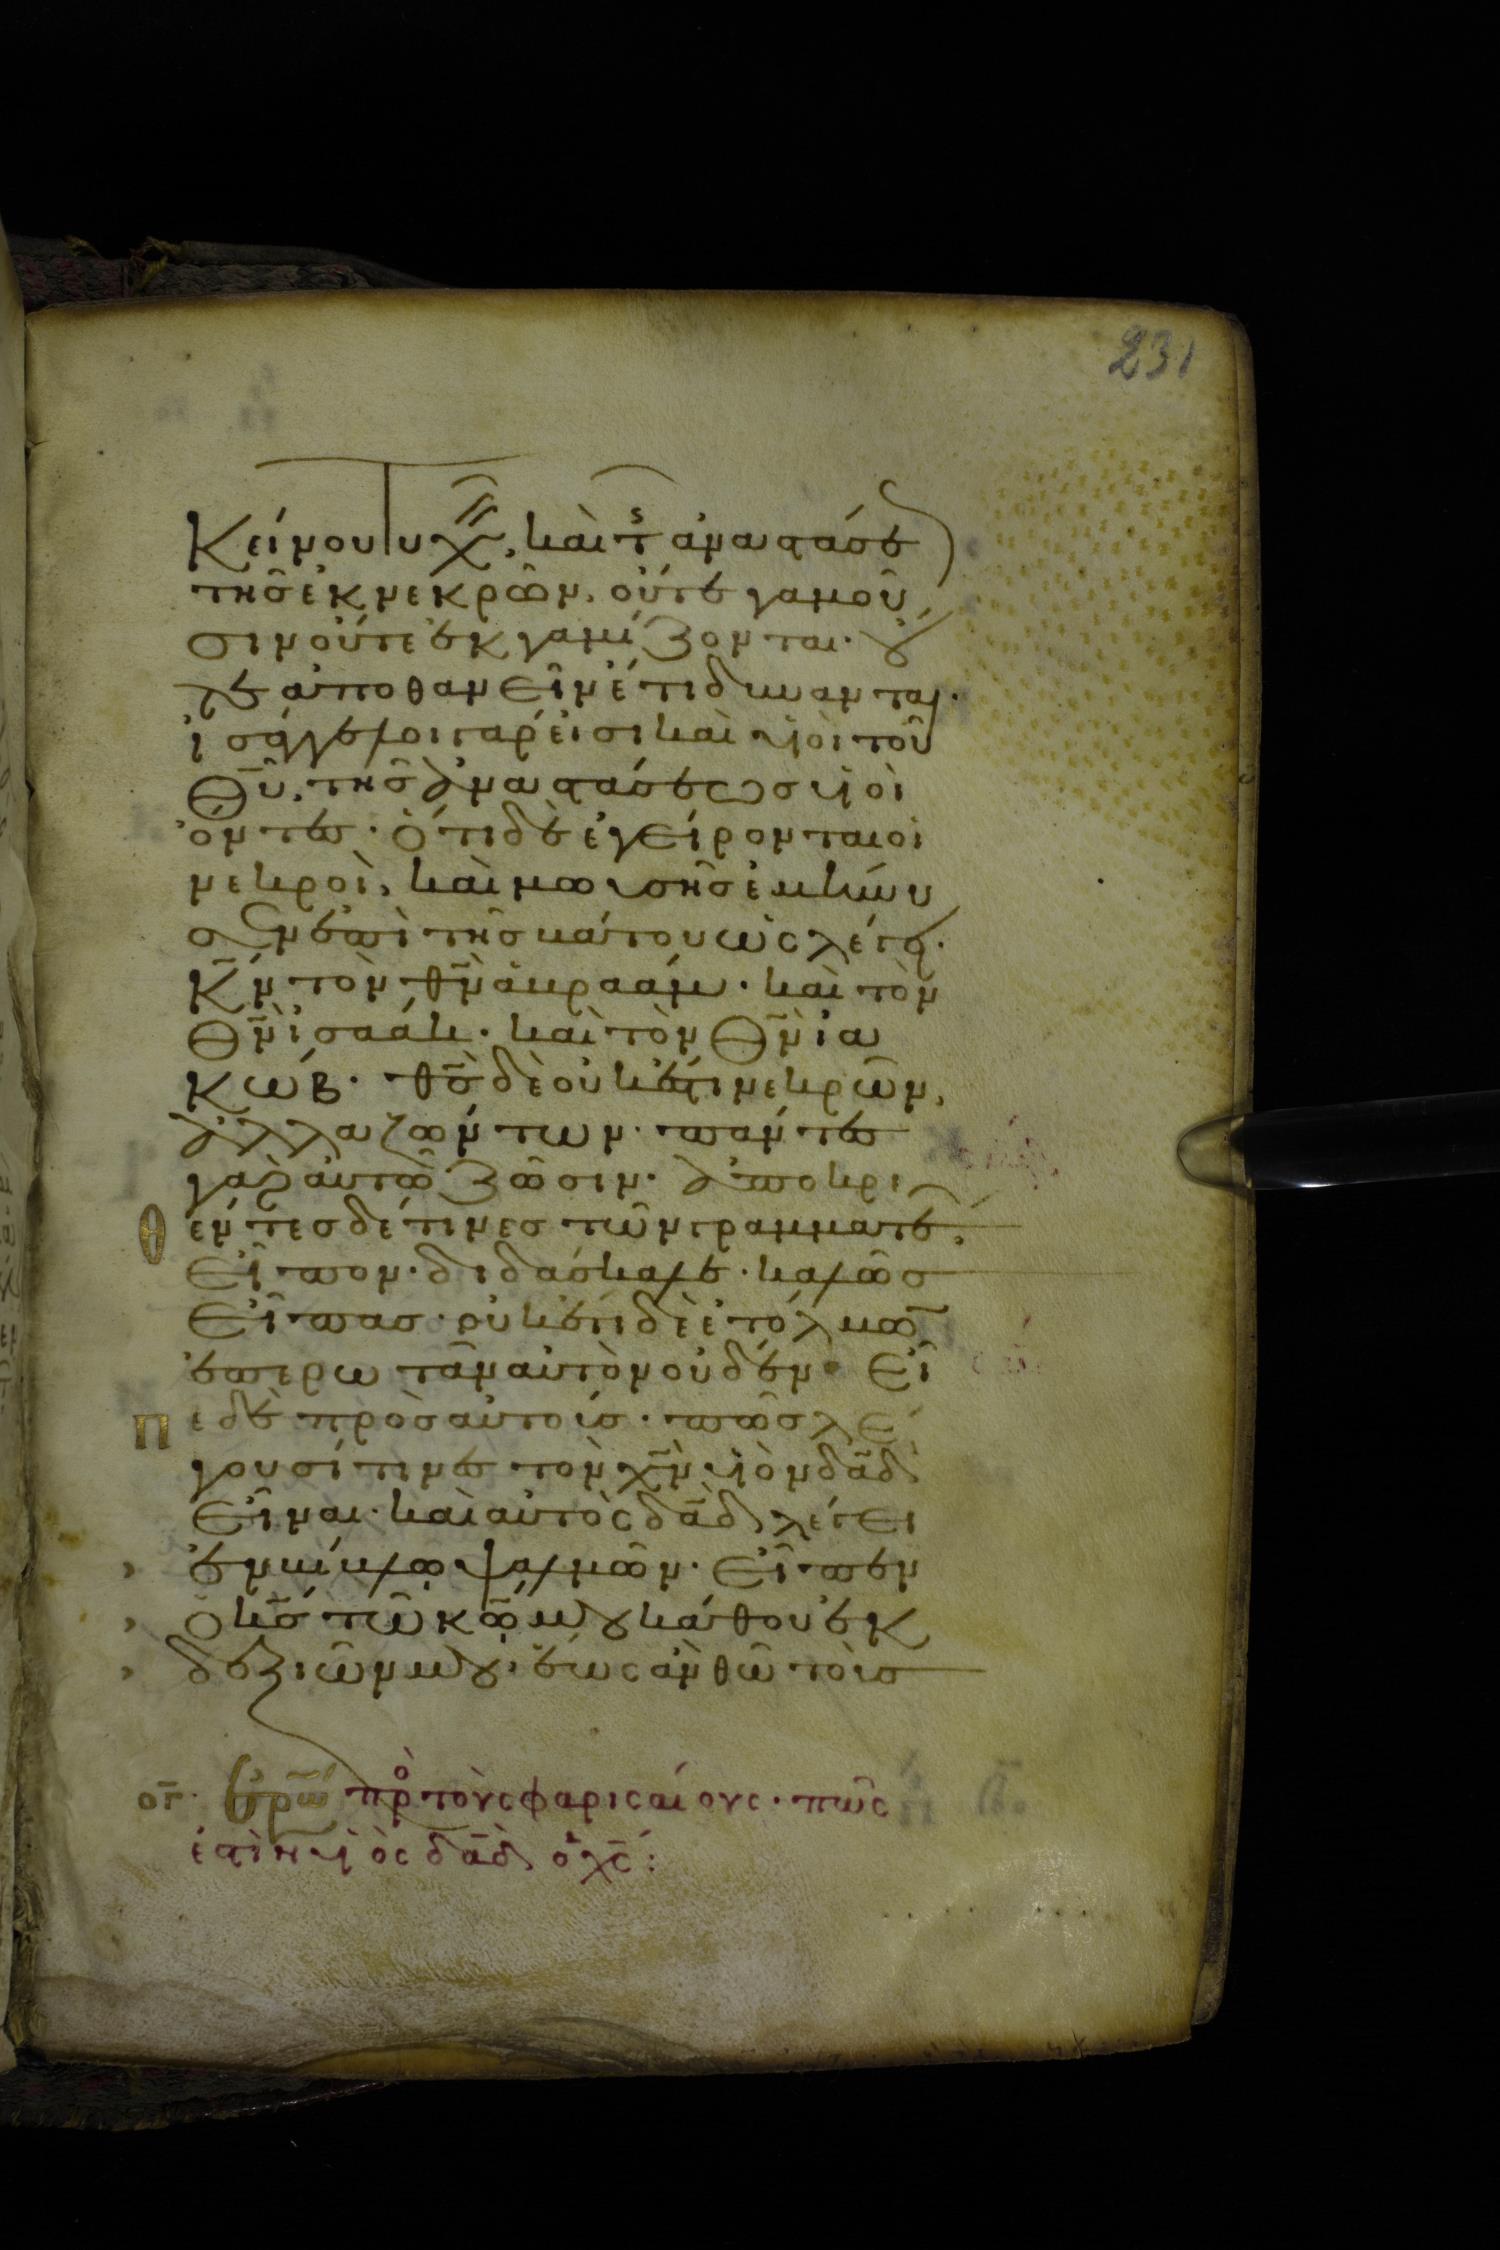 231
Κείνου τυχ, καὶ τ ἀναστάσε
τῆς ἐκ νεκρῶν, οὔτε γαμοῦ
σιν οὔτε ἐκγαμίζονται· ȣ
τε ἀποθανεῖν ἔτι δύνανται·
ἰσάγγελοι γάρ εἰσι καὶ υἱοὶ τοῦ
Θῦ, τῆς ἀναστάσεως υἱοὶ
ὄντες· Ὅτι δὲ ἐγείρονται οἱ
νεκροὶ, καὶ μωυσῆς ἐμήνυ
σεν ἐπὶ τῆς βάτου ὡς λέγει·
Κν τὸν θν ἀβραάμ· καὶ τὸν
Θν ἰσαάκ· καὶ τὸν Θν ἰα
κώβ· θς δὲ οὐκ ἔστι νεκρῶν,
ἀλλα ζώντων· πάντες
γὰρ αὐτῶ ζῶσιν· ἀποκρι
θ έντες δέ τινες τῶν γραμματέ
Εἶπον· διδάσκαλε· καλῶς
Εἶπας· οὐκ ἔτι δὲ ἐτόλμω
ἐπερωτᾶν αὐτὸν οὐδέν· Εἶ
π ε δὲ πρὸς αὐτοίς· πῶς λέ
γουσί τινες τὸν χν υἱὸν δαδ
Εἶναι· καὶ αὐτὸς δαδ λέγει
ἐν βίβλω ψαλμῶν· Εἶπεν
Ὁ κς τῶ κω μȣ κάθου ἐκ
δεξιῶν μȣ· ἕως ἂν θῶ τοὺς
ογ· ἐπερω πρὸ τοὺς φαρισαίους· πῶς
ἐστὶν υἱὸς δαδ ὁ χς: